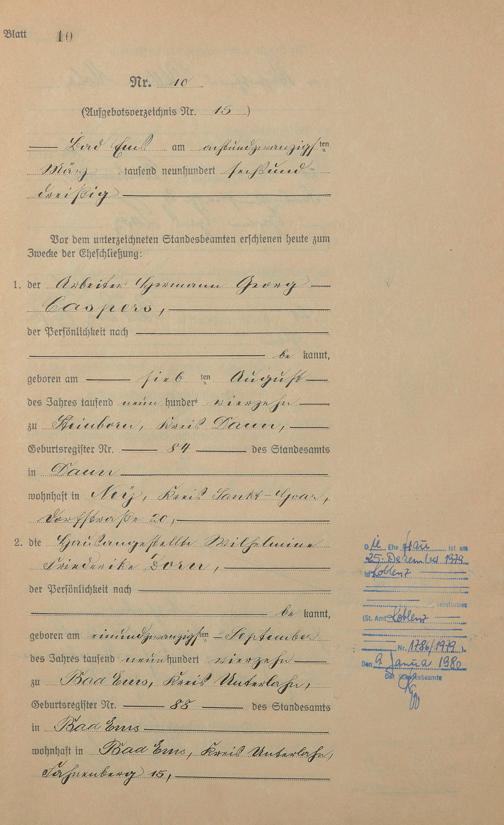 Blatt 10
Nr. 10
(Aufgebotsverzeichnis Nr. 15)
Bad Ems am achtundzwanzigsten
März tausend neunhundert sechsund
dreißig
Vor dem unterzeichneten Standesbeamten erschienen heute zum
Zwecke der Eheschließung:
1. der Arbeiter Hermann Georg
Caspers,
der Persönlichkeit nach
be kannt,
geboren am sieb ten August
des Jahres tausend neun hundert vierzehn
zu Steinborn, Kreis Daun,
Geburtsregister Nr. 84 des Standesamts
in Daun
wohnhaft in Kreis Sankt-Goar,
Dorfstraße 20,
2. die Hausangestellte Wilhelmine
Friederike Dorn,
der Persönlichkeit nach
be kannt,
geboren am einundzwanzigsten September
des Jahres tausend neunhundert vierzehn
zu Bad Ems, Kreis Unterlahn,
Geburtsregister Nr. 88 des Standesamts
in Bad Ems
wohnhaft in Bad Ems, Kreis Unterlahn,
15,
Die Ehefrau ist am
25. Dezember 1979
in Koblenz
verstorben
(St. Amt Koblenz
Nr. 1786/1979).
Den 9. Januar 1980
Der Standesbeamte